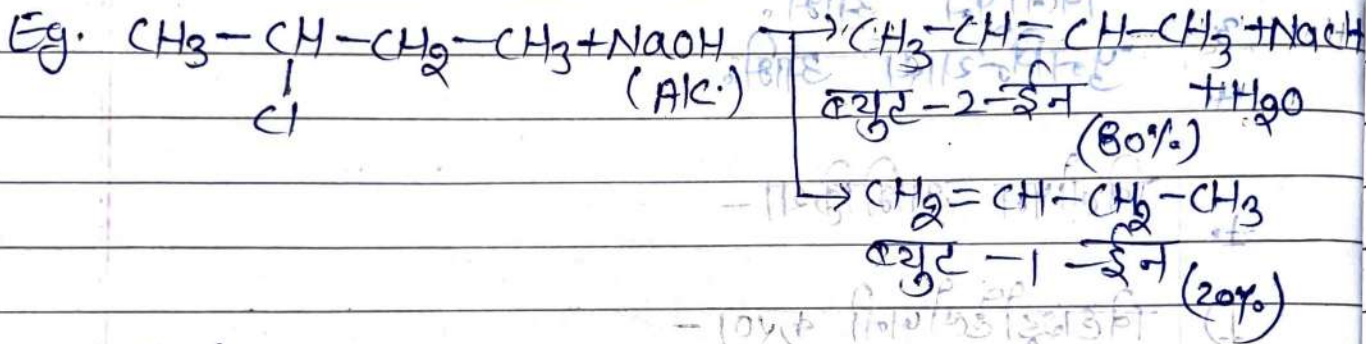 Eg. CH3-CH-CH2-CH3+NaOH → CH3-CH=CH-CH3+NaCl
Cl (Alc.) ब्युट-2-ईन +H2O
(80%)
→ CH2=CH-CH2-CH3
ब्युट-1-ईन (20%)